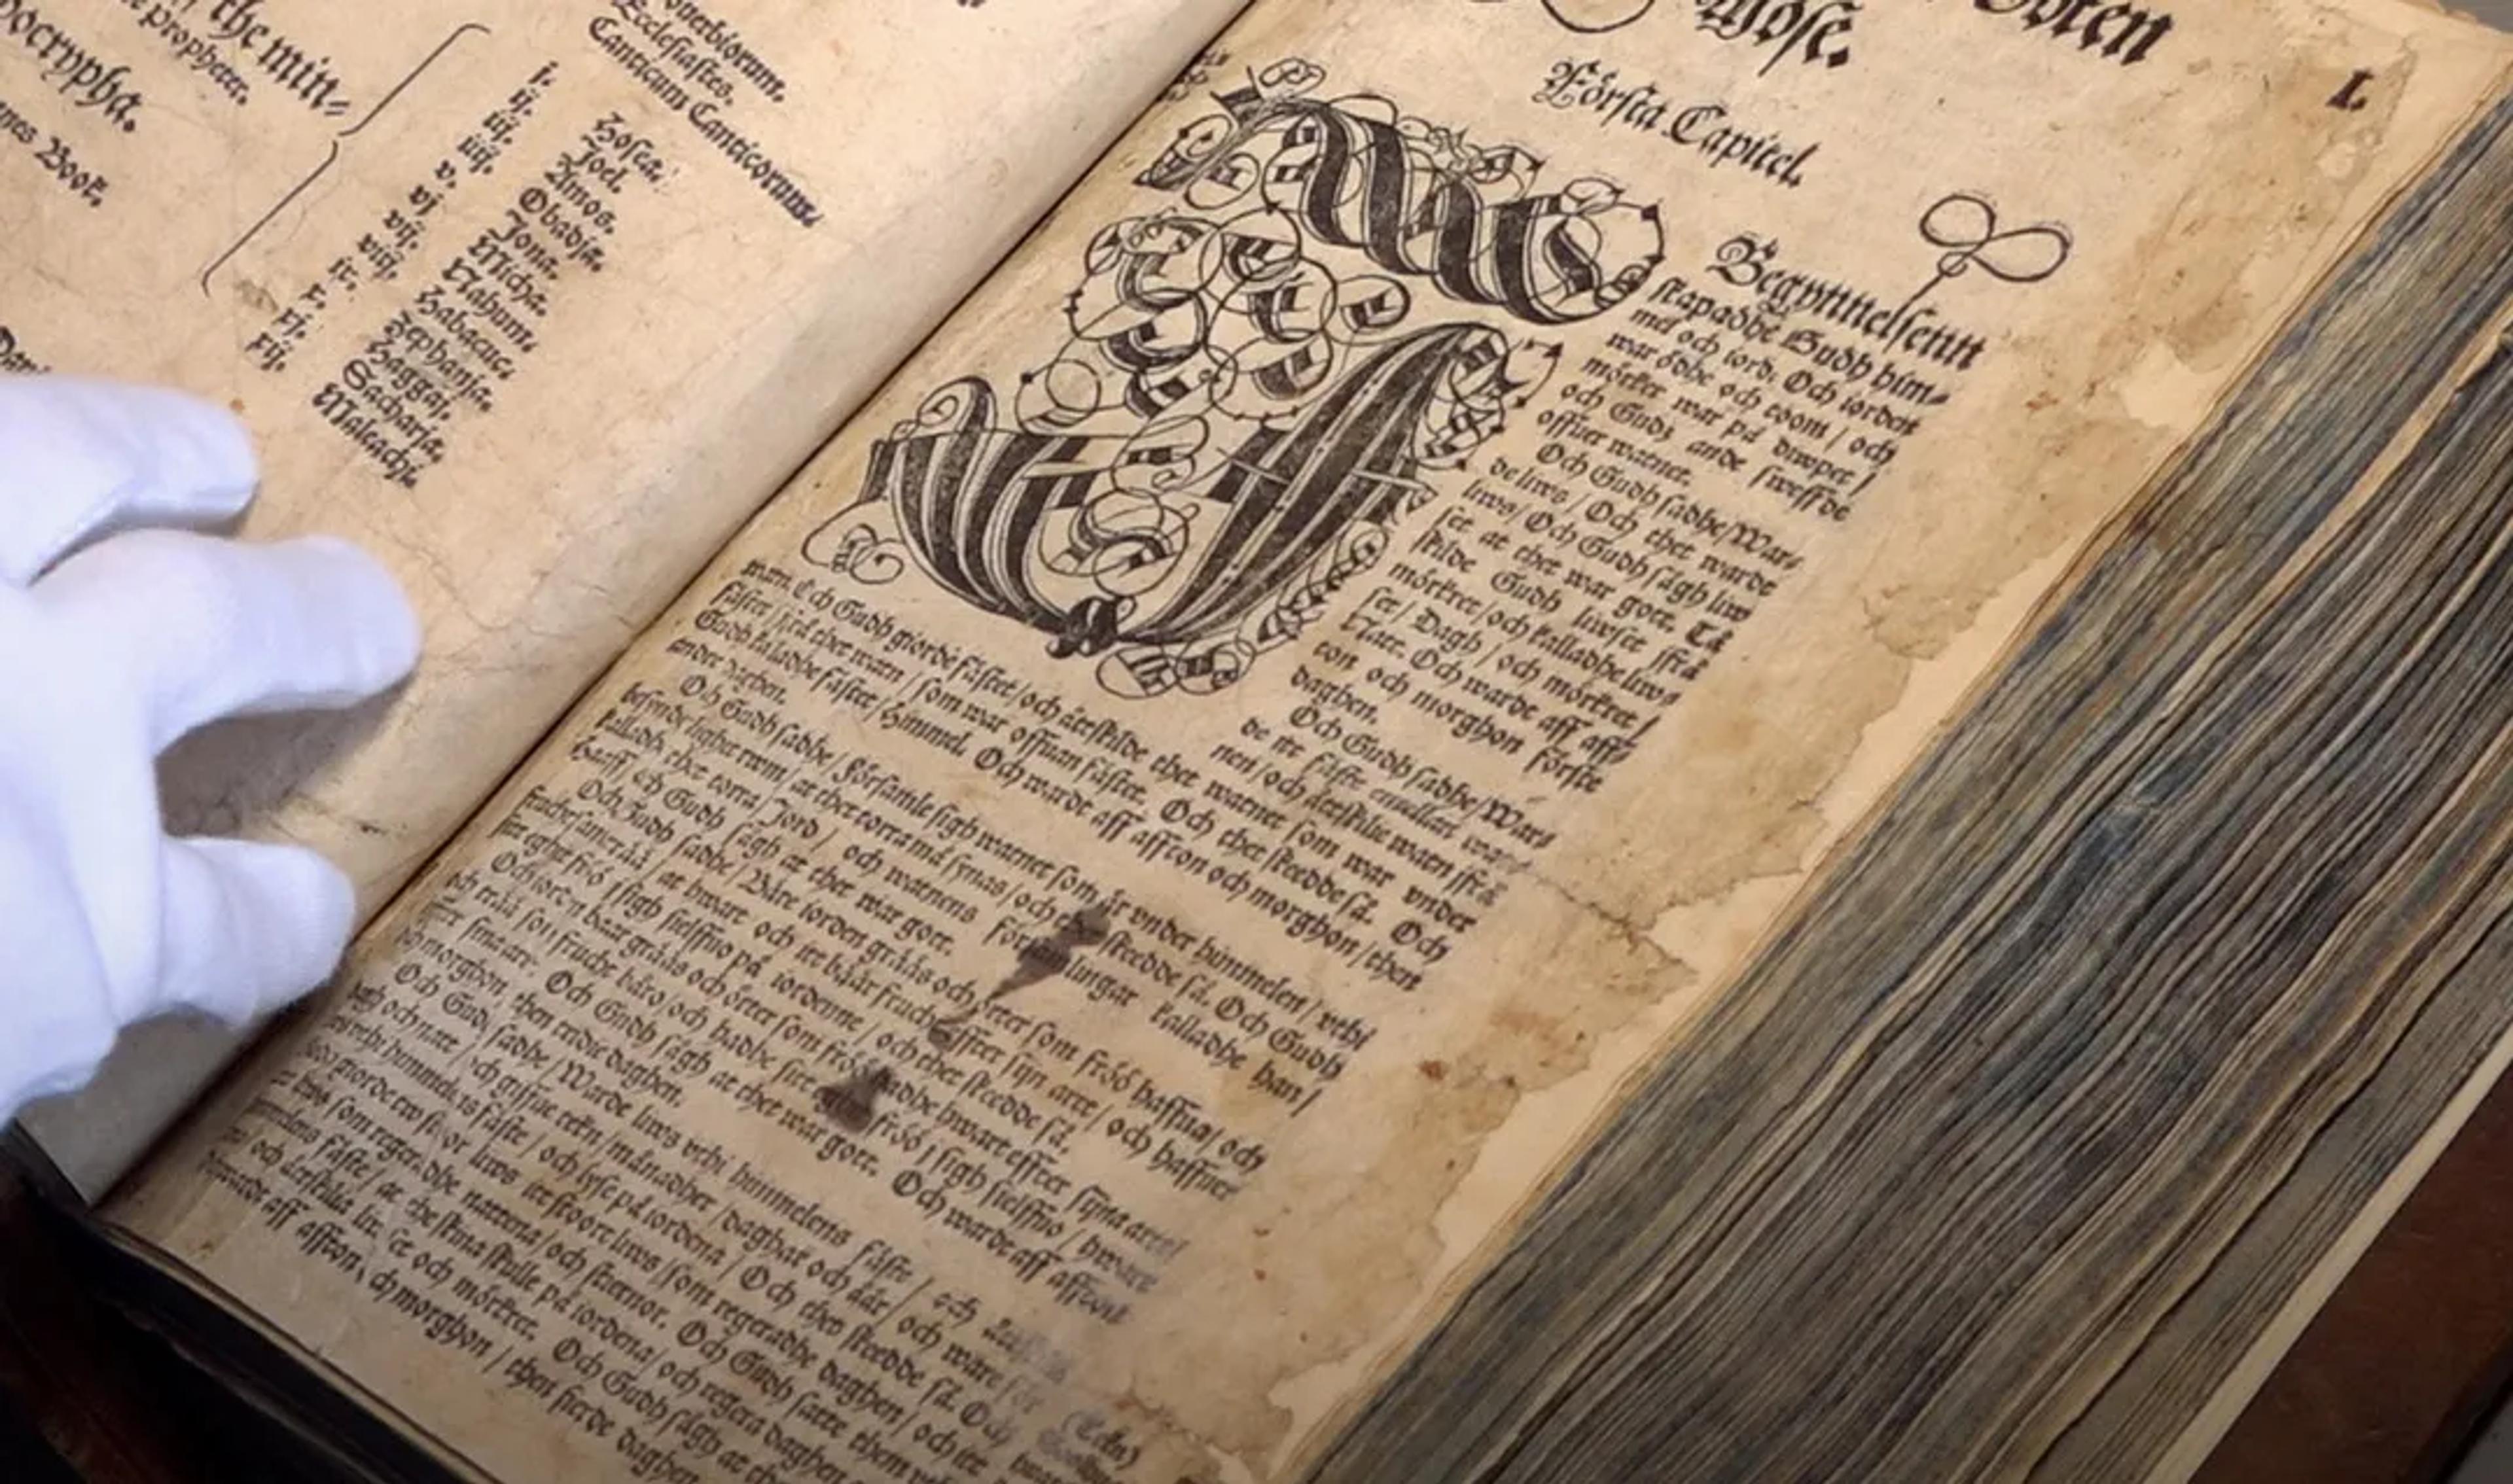 the min⸗
propheter.
Apocrypha.
Book.
Ecclesiastes.
Canticum Canticorum.
j. Hosea.
ij. Joel.
iij. Amos.
iiij. Obadja.
v. Jona.
vj Micha.
vij. Nahum.
viij. Habacuc.
ix. Zephanja.
x. Haggaj.
xj. Sacharja.
xij. Maleachj.
Mose.
I.
Första Capitel.
I
Begynnelsenn
skapadhe Gudh him⸗
mel och iord. Och iorden
war ödhe och toom / och
mörker war på diwpet /
och Gudz ande sweffde
offuer watnet.
Och Gudh sadhe / War⸗
de liws / Och thet wardt
liws / Och Gudh sågh liws
set at thet war gott. Tå
skilde Gudh liwset ifrå
mörkret / och kalladhe liws
set / Dagh / och mörkret /
Natt. Och wardt aff aff⸗
ton och morghon förste
daghen.
Och Gudh sadhe / War⸗
de itt fäste emellan
nen / och åtskilie watn ifrå
watn. Och Gudh giorde fästet / och åtskilde thet watnet som war vnder
fästet / ifrå thet watn / som war offuan fästet. Och thet skedde så. Och
Gudh kaladhe fästet / Himmel. Och wardt aff affton och morghon / then
andre daghen.
Och Gudh sadhe / Församle sigh watnet som är vnder himmelen / vthi
besynderlighit rwm / at thet torra må synas / och skedde så. Och Gudh
kalladhe thet torra / Jord / och watnens lingar kalladhe han /
Haaff / och Gudh sågh at thet war gott.
Och Gudh sadhe / Bäre iorden grääs och örter som fröö haffua / och
fruchtsam trää / at hwart och itt bäär frucht effter sijn art / och haffuer
sitt eghit fröö i sigh sielffuo på iordenne / och thet skedde så.
Och iorden baar grääs och örter som fröö hadhe hwart effter sijna art /
och trää som frucht båro / och hadhe sitt fröö i sigh sielffuo / hwart
effter sina art. Och Gudh sågh at thet war gott. Och wardt aff affton
och morghon then tridie daghen.
Och Gudh sadhe / Warde liws vthi himmelens fäste / och
dagh och natt / och giffue tekn / månadher / daghar och åår / och ware
vthi himmelens fäste / och lyse på iordena / Och thet skedde så. Och
Gudh giorde tw stoor liws itt stoort liws / som regeradhe daghen / och itt
liws som regeradhe nattena / och stiernor. Och Gudh satte them
himmelens fäste / at the skina skulle på iordena / och regera daghen
och åtskilia liwset och mörkret. Och Gudh sågh at
wardt aff affton och morghon / then fierde daghen